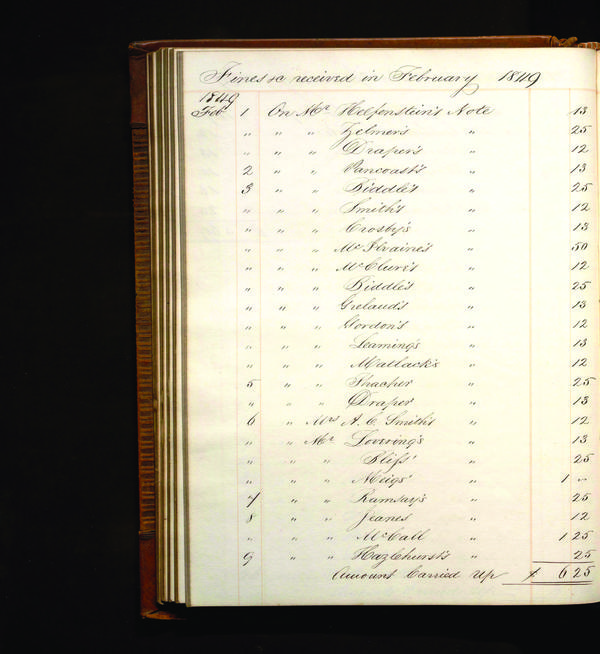 Fines &c received in February 1849
1849
Feb 1 On Mr Helfenstein's Note 13
" " " Zelmer's " 25
" " " Draper's " 12
2 " " Pancoast's " 13
3 " " Biddle's " 25
" " " Smith's " 12
" " " Crosby's " 13
" " " McIlvaine's " 50
" " " McClure's " 12
" " " Biddle's " 25
" " " Grelaud's " 13
" " " Gordon's " 12
" " " Leaming's " 13
" " " Matlack's " 12
5 " " Thacher " 25
" " " Draper " 13
6 " Mrs A. C. Smith's " 12
" " Mr Lovering's " 13
" " " Bliss' " 25
" " " Meigs' " 1 "
7 " " Ramsay's " 25
8 " " Jeanes " 12
" " " McCall " 1 25
9 " " Hazlehurst's " 25
Amount Carried Up $ 6 25